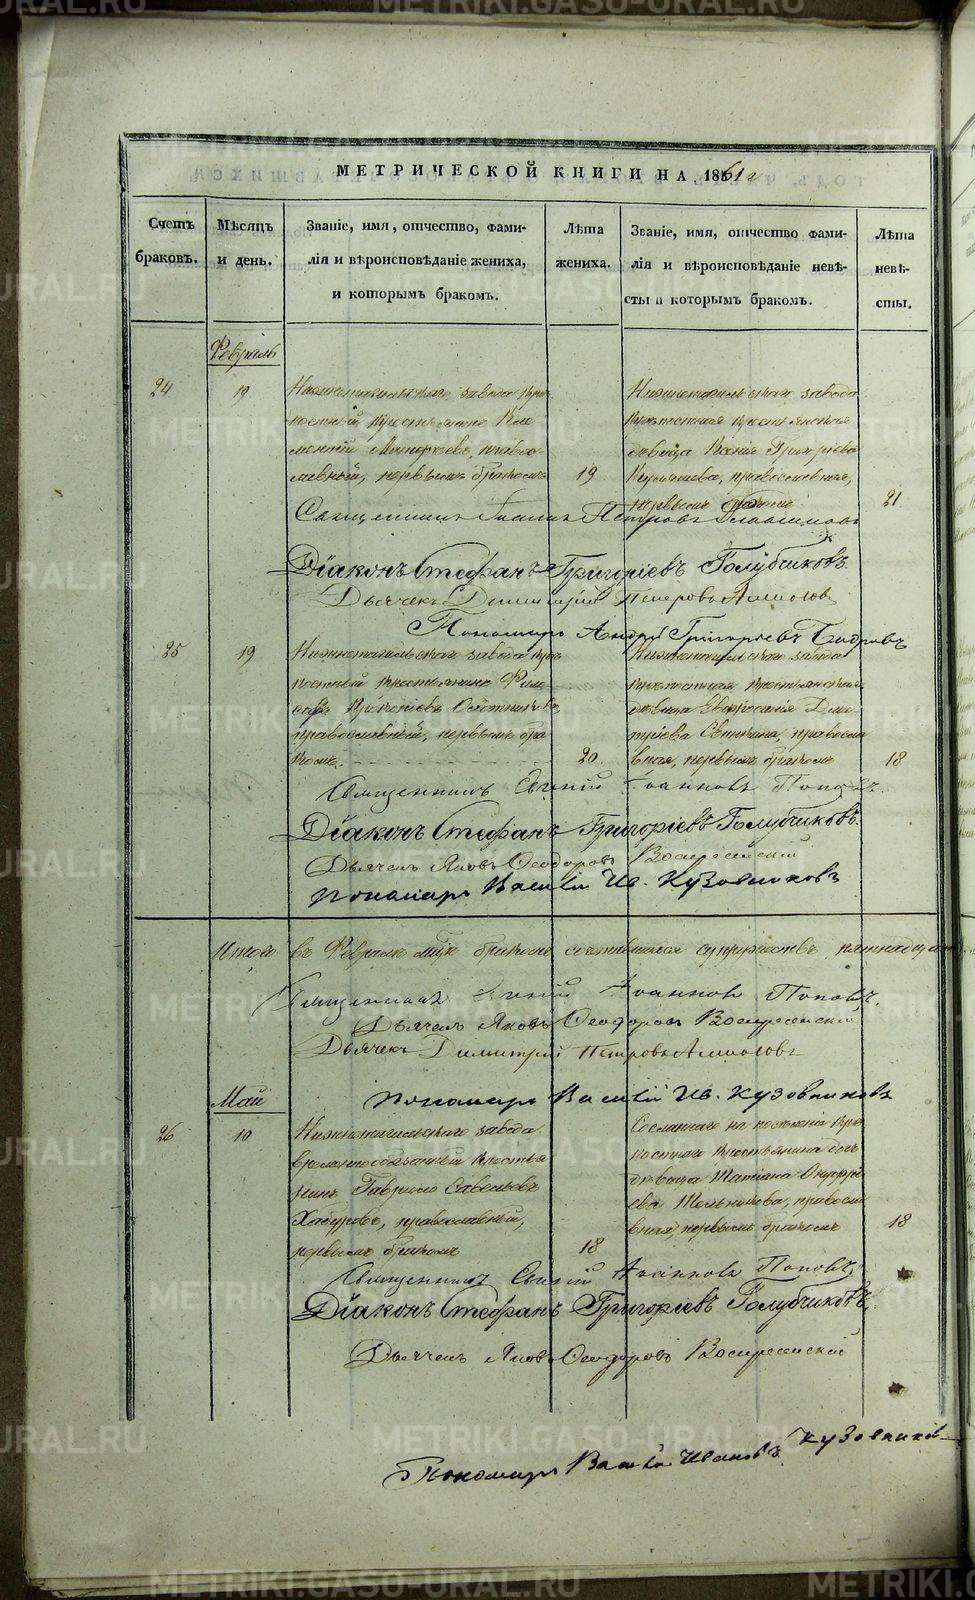 МЕТРИЧЕСКОЙ КНИГИ НА 1861 г
Счетъ браковъ.
Мѣсяцъ и день.
Званіе, имя, отчество, фами-
лія и вѣроисповѣданіе жениха,
и которымъ бракомъ.
Лѣта
жениха.
Званіе, имя, отчество фами-
лія и вѣроисповѣданіе невѣ-
сты и которымъ бракомъ.
Лѣта
невѣ-
сты.
Февраль
24
19
Нижнетагильскаго завода крѣ
постный крестьянинъ
православный, первымъ бракомъ
19
Нижнетагильскаго завода
крѣпостная крестьянская
дѣвица Ксенія Григорьева
православная,
первымъ бракомъ
21
Священникъ Іоаннъ Петровъ
Діаконъ Стефанъ Григоріевъ Голубчиковъ
Дьячекъ Димитрій Петровъ
Пономарь Андрей Григорьевъ
25
19
Нижнетагильскаго завода крѣ
постный крестьянинъ
православный, первымъ бра
комъ.
20
Нижнетагильскаго завода
крѣпостная крестьянская
дѣвица Евфросинія Дми
тріева православ
ная, первымъ бракомъ
18
Священникъ Евгеній Іоанновъ Поповъ.
Діаконъ Стефанъ Григоріевъ Голубчиковъ.
Дьячекъ Яковъ Ѳеодоровъ Воскресенскій
Пономарь Василій Ив. Кузовниковъ
Итого въ Февралѣ м͠цѣ бракомъ сочетавшихся супружествъ пятнадцать
Священникъ Евгеній Іоанновъ Поповъ.
Дьячекъ Яковъ Ѳеодоровъ Воскресенскій
Дьячекъ Димитрій Петровъ
Пономарь Василій Ив. Кузовниковъ
Май
26
10
Нижнетагильскаго завода
временнообязанный крестья
нинъ Гаврило Савельевъ
православный,
первымъ бракомъ
18
Сосланнаго на поселеніе крѣ
постнаго крестьянина дочь
дѣвица Татіана Онуфрі
ева Мельникова, православ
ная, первымъ бракомъ
18
Священникъ Евгеній Іоанновъ Поповъ,
Діаконъ Стефанъ Григоріевъ Голубчиковъ.
Дьячекъ Яковъ Ѳеодоровъ Воскресенскій
Пономарь Василій Ивановъ Кузовниковъ
METRIKI.GASO-URAL.RU